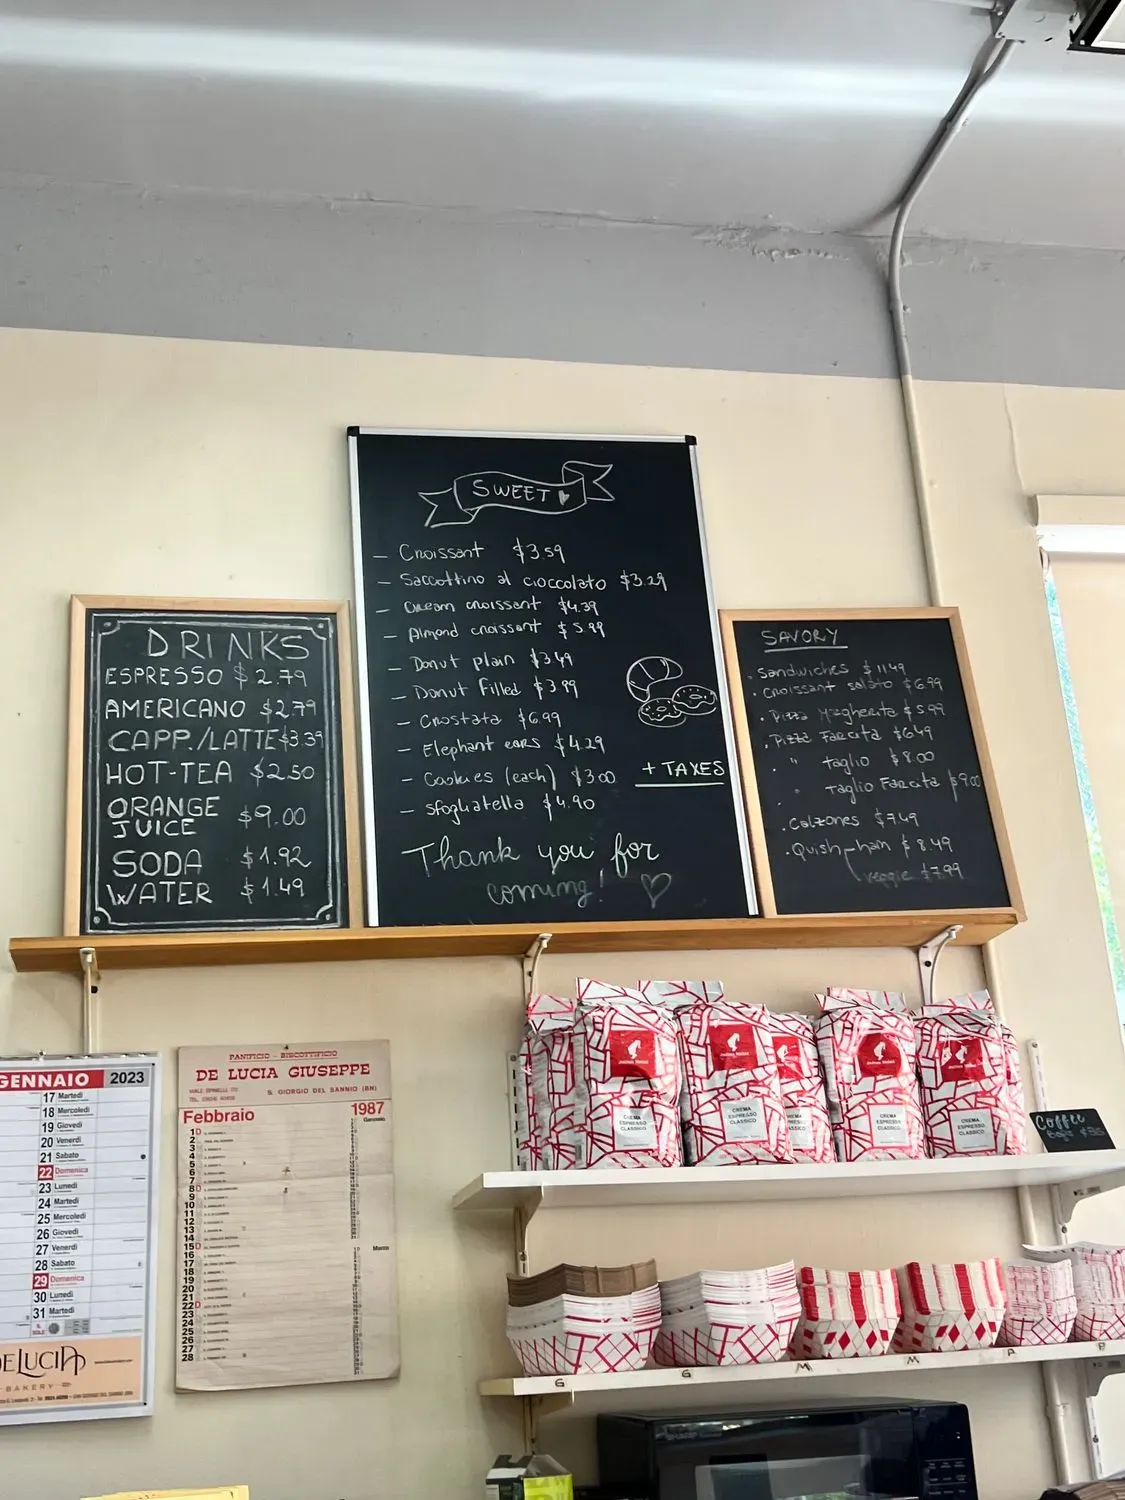 SWEET
— Croissant $3.59
— Saccottino al cioccolato $3.29
— Cream croissant $4.39
— Almond croissant $5.99
— Donut plain $3.49
— Donut Filled $3.99
— Crostata $6.99
— Elephant ears $4.29
— Cookies (each) $3.00
— sfogliatella $4.90
+ TAXES
Thank you for
coming!
DRINKS
ESPRESSO $2.79
AMERICANO $2.79
CAPP./LATTE $3.39
HOT-TEA $2.50
ORANGE
JUICE $9.00
SODA $1.92
WATER $1.49
SAVORY
. Sandwiches $11.49
. Croissant salato $6.99
. Pizza Margherita $5.99
. Pizza Farcita $6.49
. " taglio $8.00
. " taglio Farcita $9.00
. Calzones $7.49
. Quish ham $8.49
veggie $7.99
GENNAIO 2023
17 Martedì
18 Mercoledì
19 Giovedì
20 Venerdì
21 Sabato
22 Domenica
23 Lunedì
24 Martedì
25 Mercoledì
26 Giovedì
27 Venerdì
28 Sabato
29 Domenica
30 Lunedì
31 Martedì
IL SOLE
DELUCIA
BAKERY
PANIFICIO - BISCOTTIFICIO
DE LUCIA GIUSEPPE
S. GIORGIO DEL SANNIO (BN)
Febbraio 1987
Gennaio
1 D
2
3
4
5
6
7
8 D
9
10
11
12
13
14
15 D
16
17
18
19
20
21
22 D
23
24
25
26
27
28
Marzo
Julius Meinl
CREMA
ESPRESSO
CLASSICO
Julius Meinl
CREMA
ESPRESSO
CLASSICO
CREMA
ESPRESSO
CLASSICO
Julius Meinl
CREMA
ESPRESSO
CLASSICO
Julius Meinl
CREMA
ESPRESSO
CLASSICO
Coffee
G G M M P P